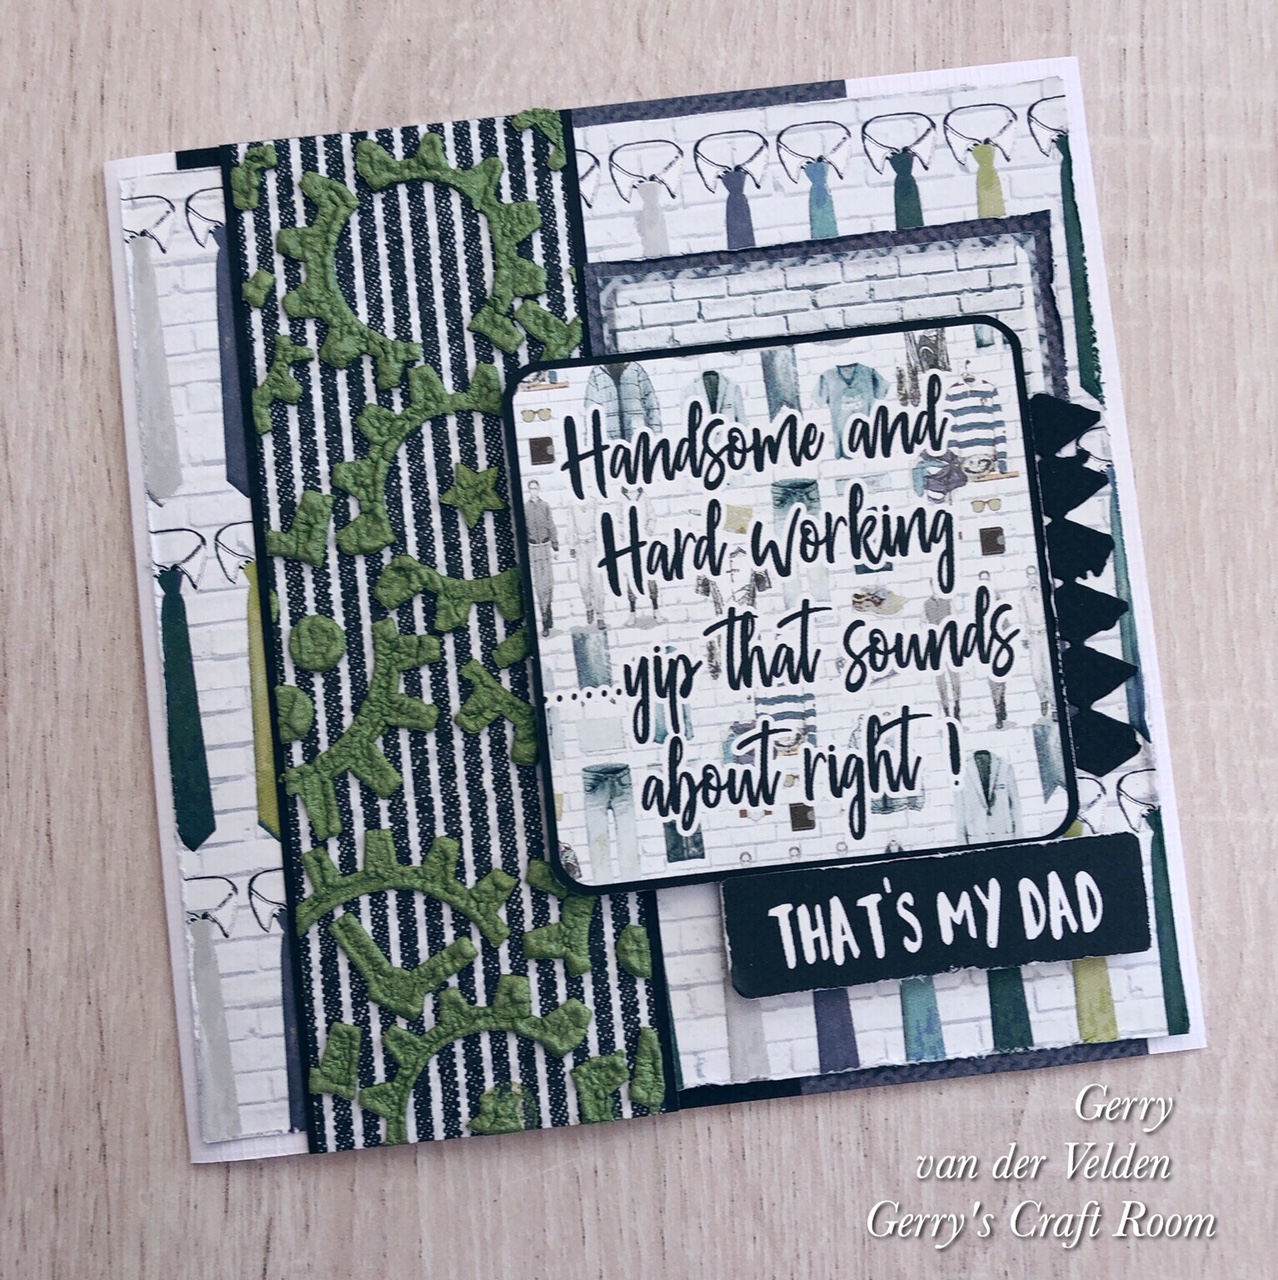 Handsome and
Hard working
.....yip that sounds
about right !
THAT'S MY DAD
Gerry
van der Velden
Gerry's Craft Room